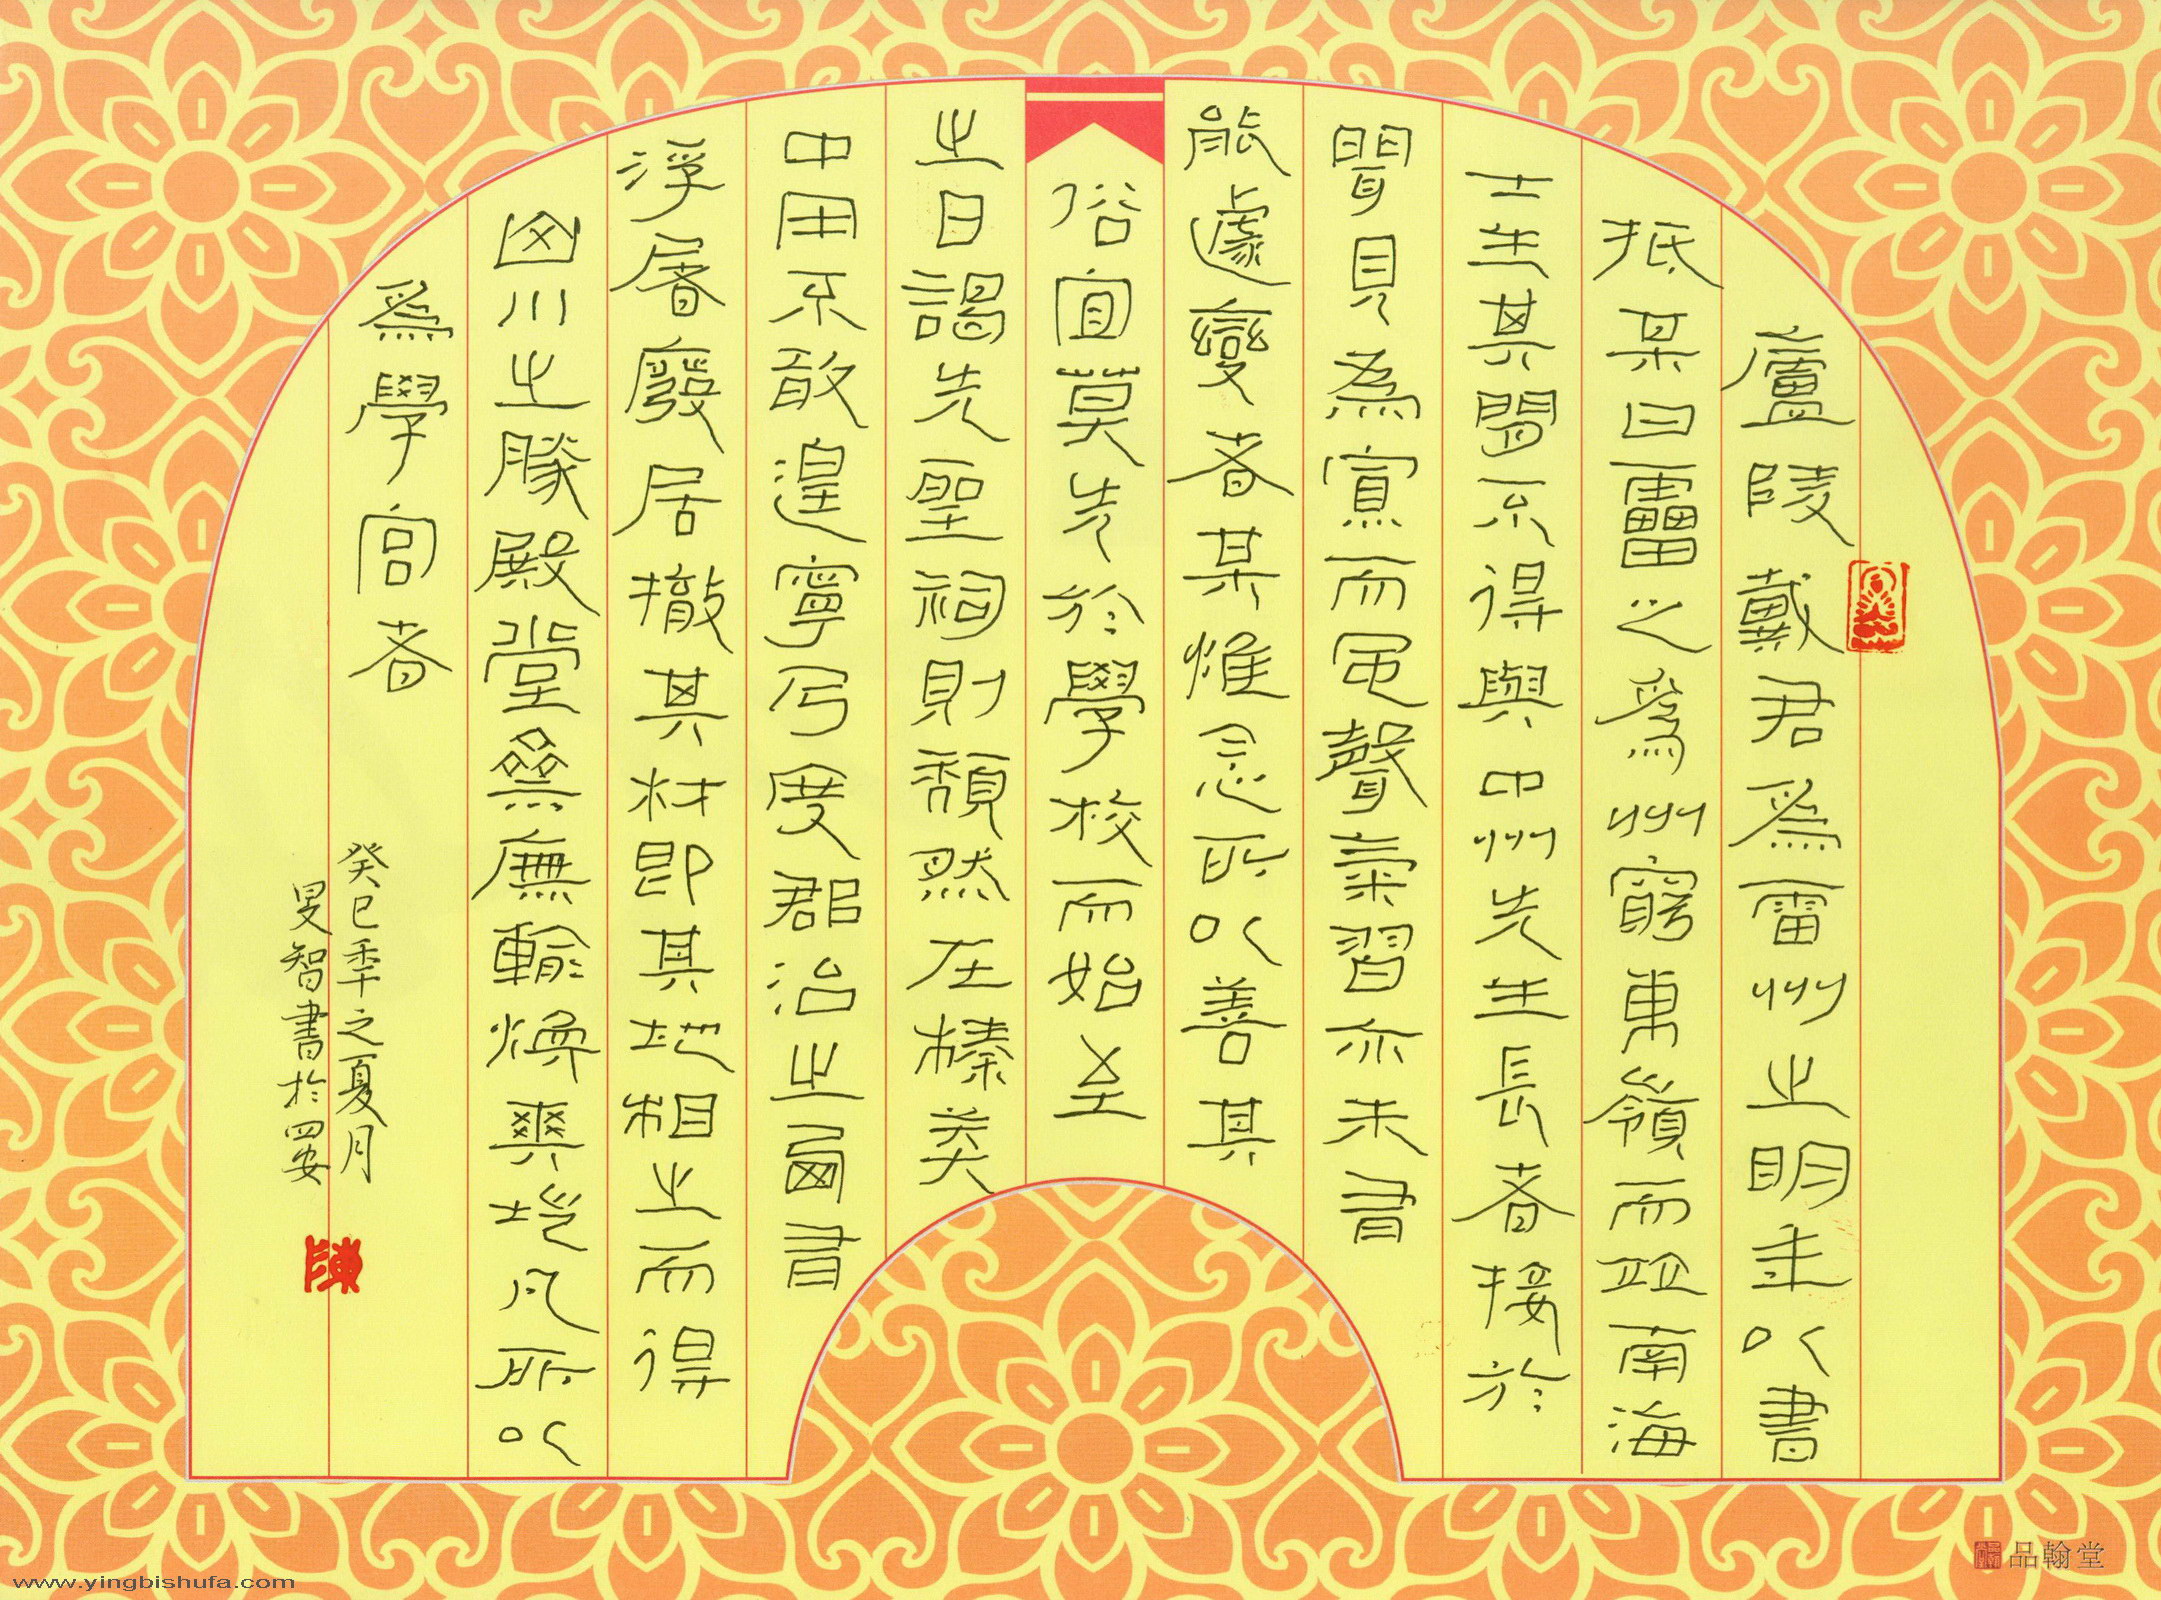 廬陵戴君爲雷州之明年以書
抵某曰雷之爲州窮東嶺而並南海
士生其間不得與中州先生長者接於
聞見為寡而風聲氣習亦未有
能遽變者某惟念所以善其
俗宜莫先於學校而始至
之日謁先聖祠則頹然在榛莽
中用不敢遑寧乃度郡治之西有
浮屠廢居撤其材即其地相之而得
川之勝殿堂廡輪煥爽塏凡所以
爲學宮者
癸巳年之夏月
旻智書於四安
陳
品翰堂
www.yingbishufa.com